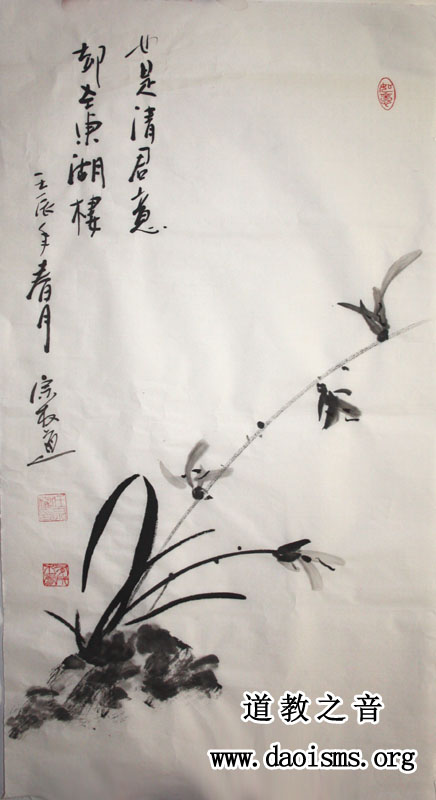 也是清君意
却東湖棲
壬辰年春月
道教之音
www.daoisms.org